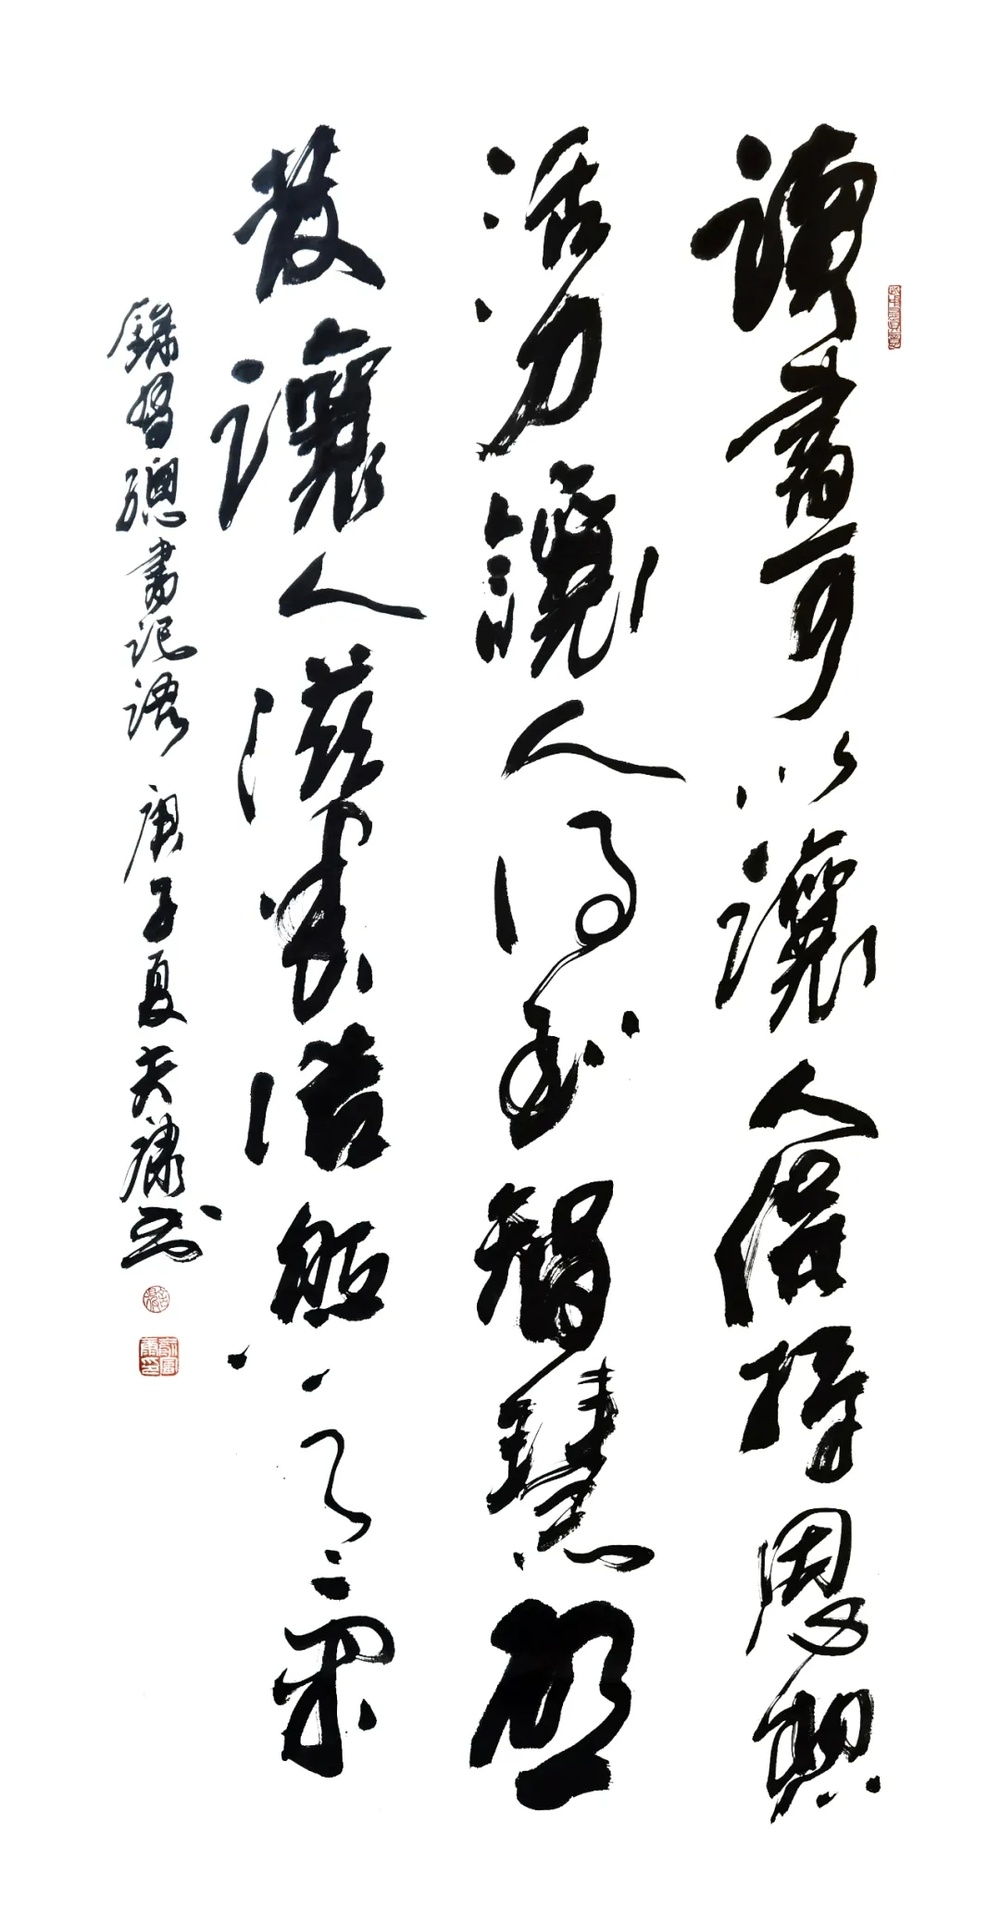 讀書可以讓人保持思想
活力讓人得到智慧啟
發讓人滋養浩然之氣
錄習總書記語 庚子夏 書